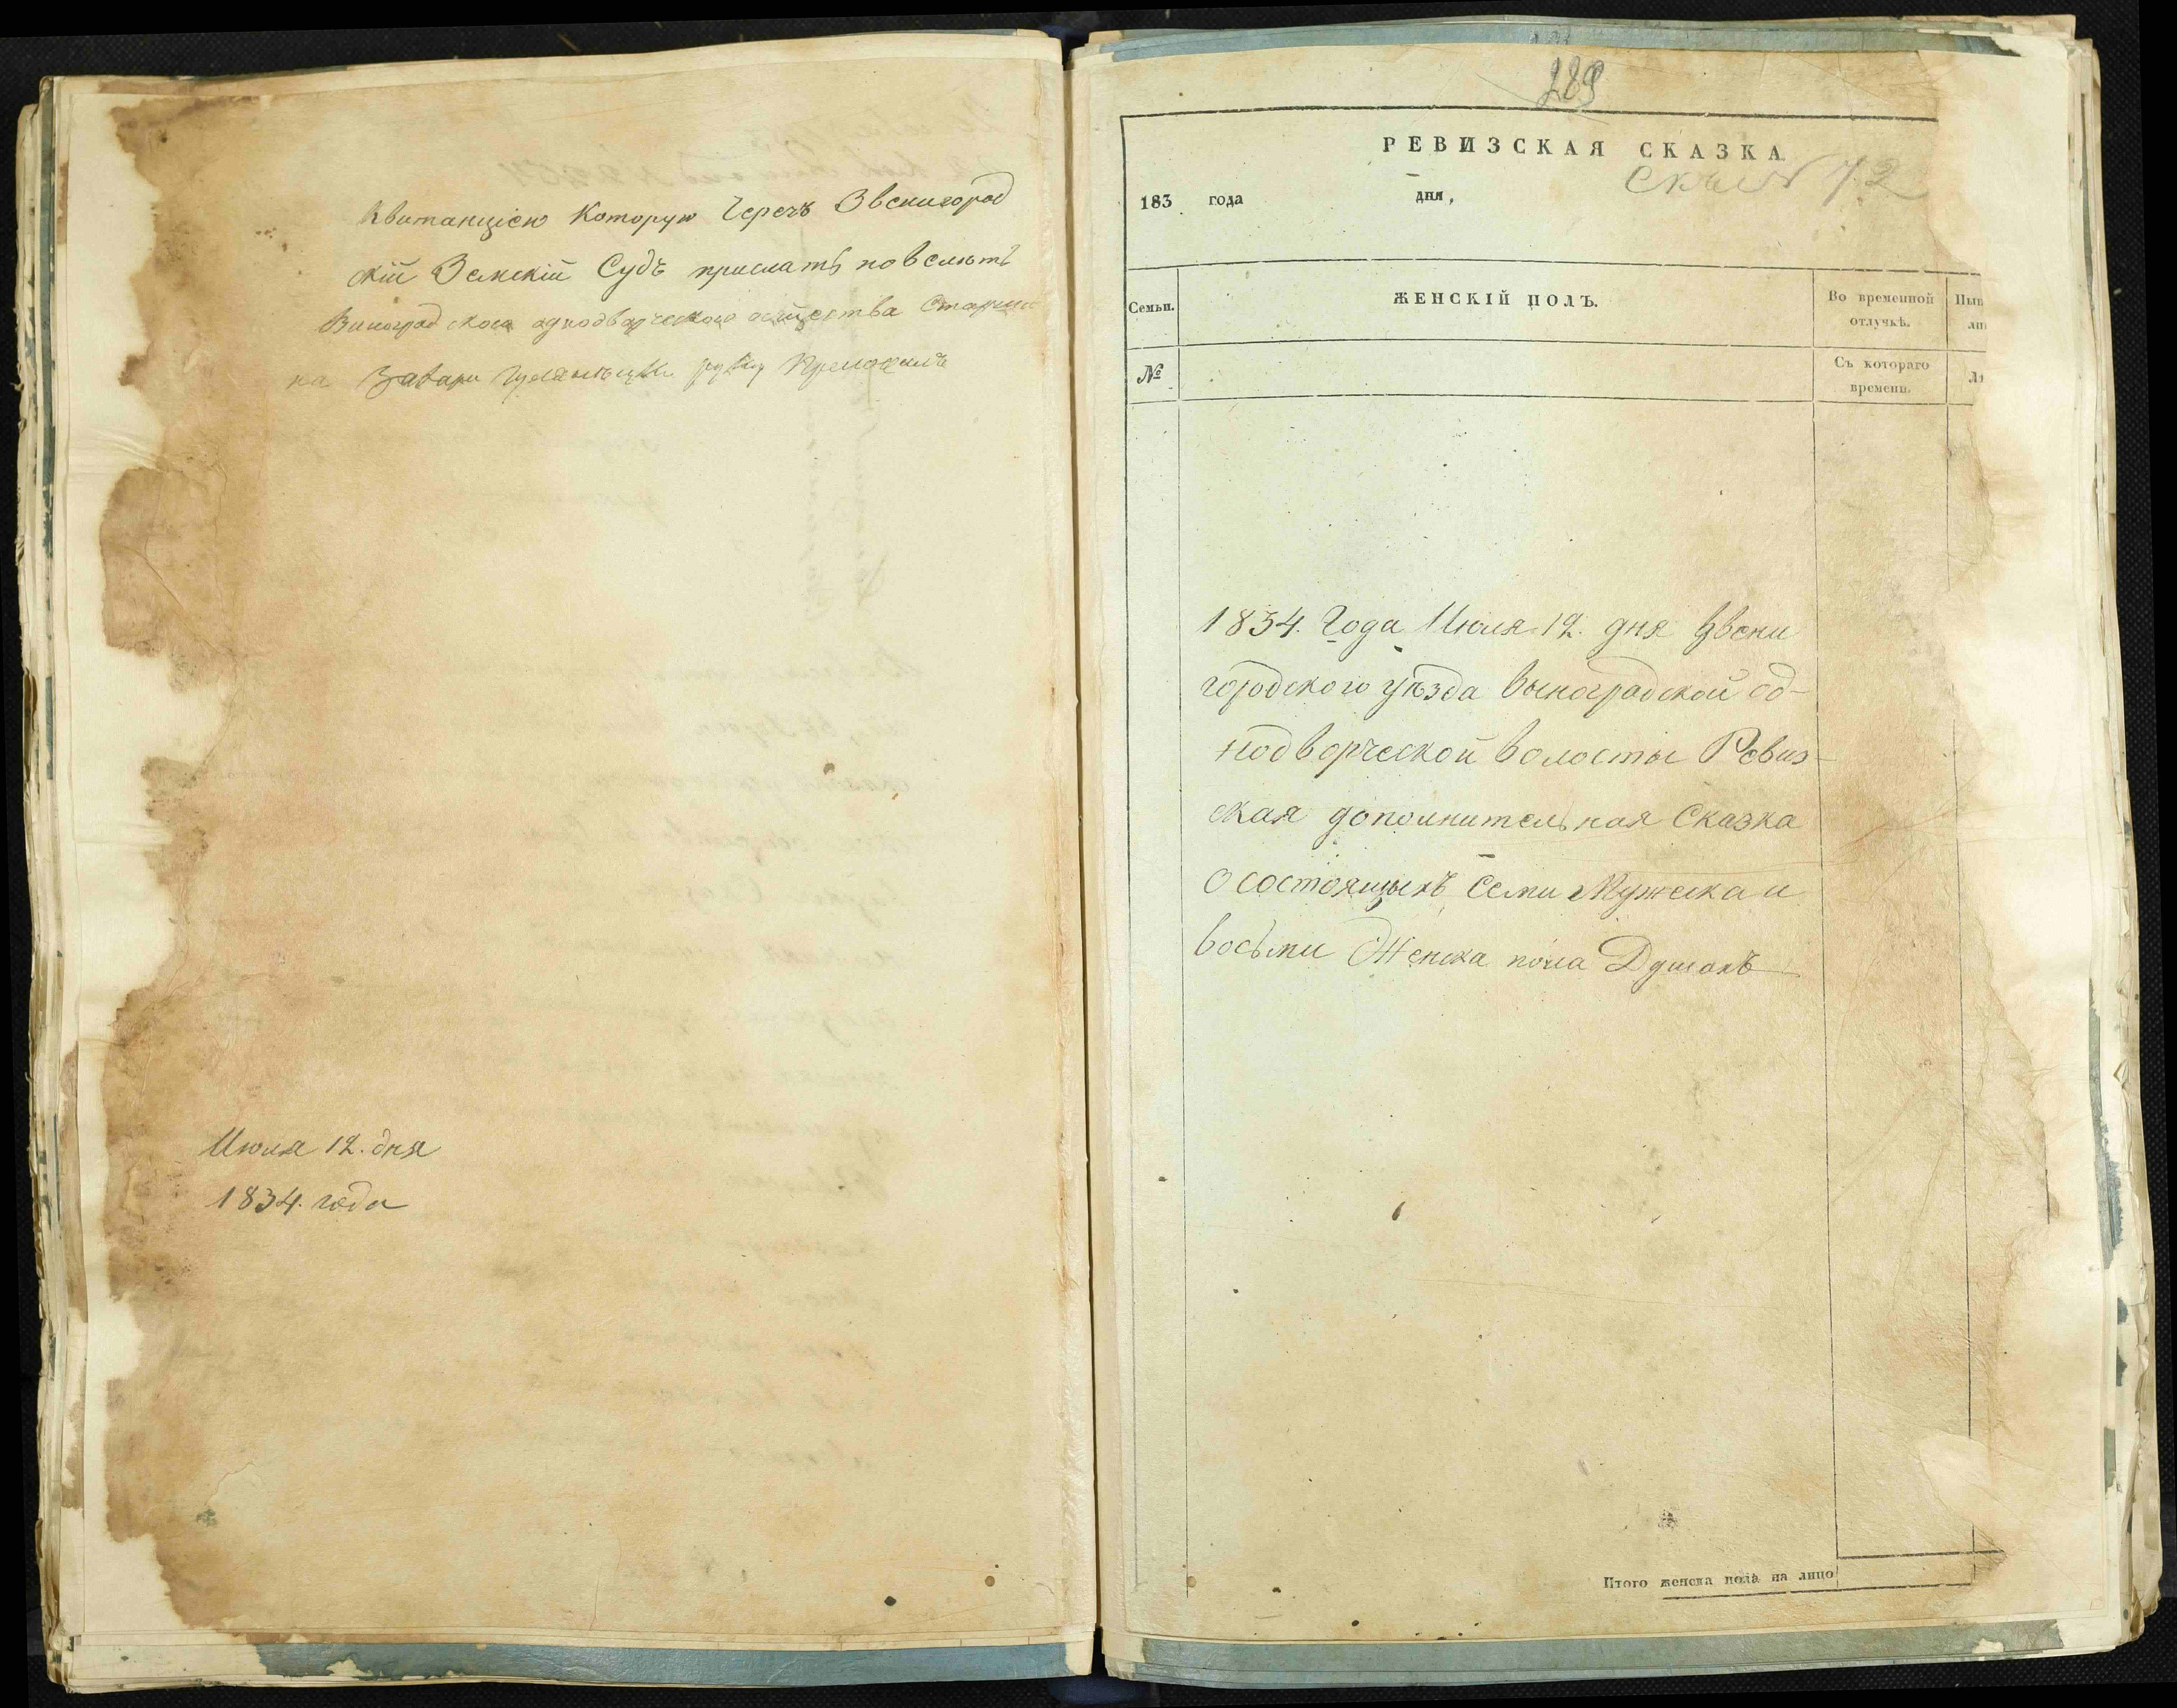 квитанцією которую Черезъ Звенигород
скій Земскій Судъ прислать повелѣть
Виноградского однодворческого общества Старши
на руку Приложилъ
Июля 12. дня
1834. года
289
РЕВИЗСКАЯ СКАЗКА
72
183 года дня,
Семьи.
ЖЕНСКІЙ ПОЛЪ.
Во временной
отлучкѣ.
№
Съ котораго
времени.
1834. Года Июля 12. дня Звени
городского уѣзда Выноградской од-
нодворческой волосты Ревиз-
ская дополнительная Сказка
о состоящихъ семи Мужеска и
восьми Женска пола Душахъ
Итого женска пола на лицо